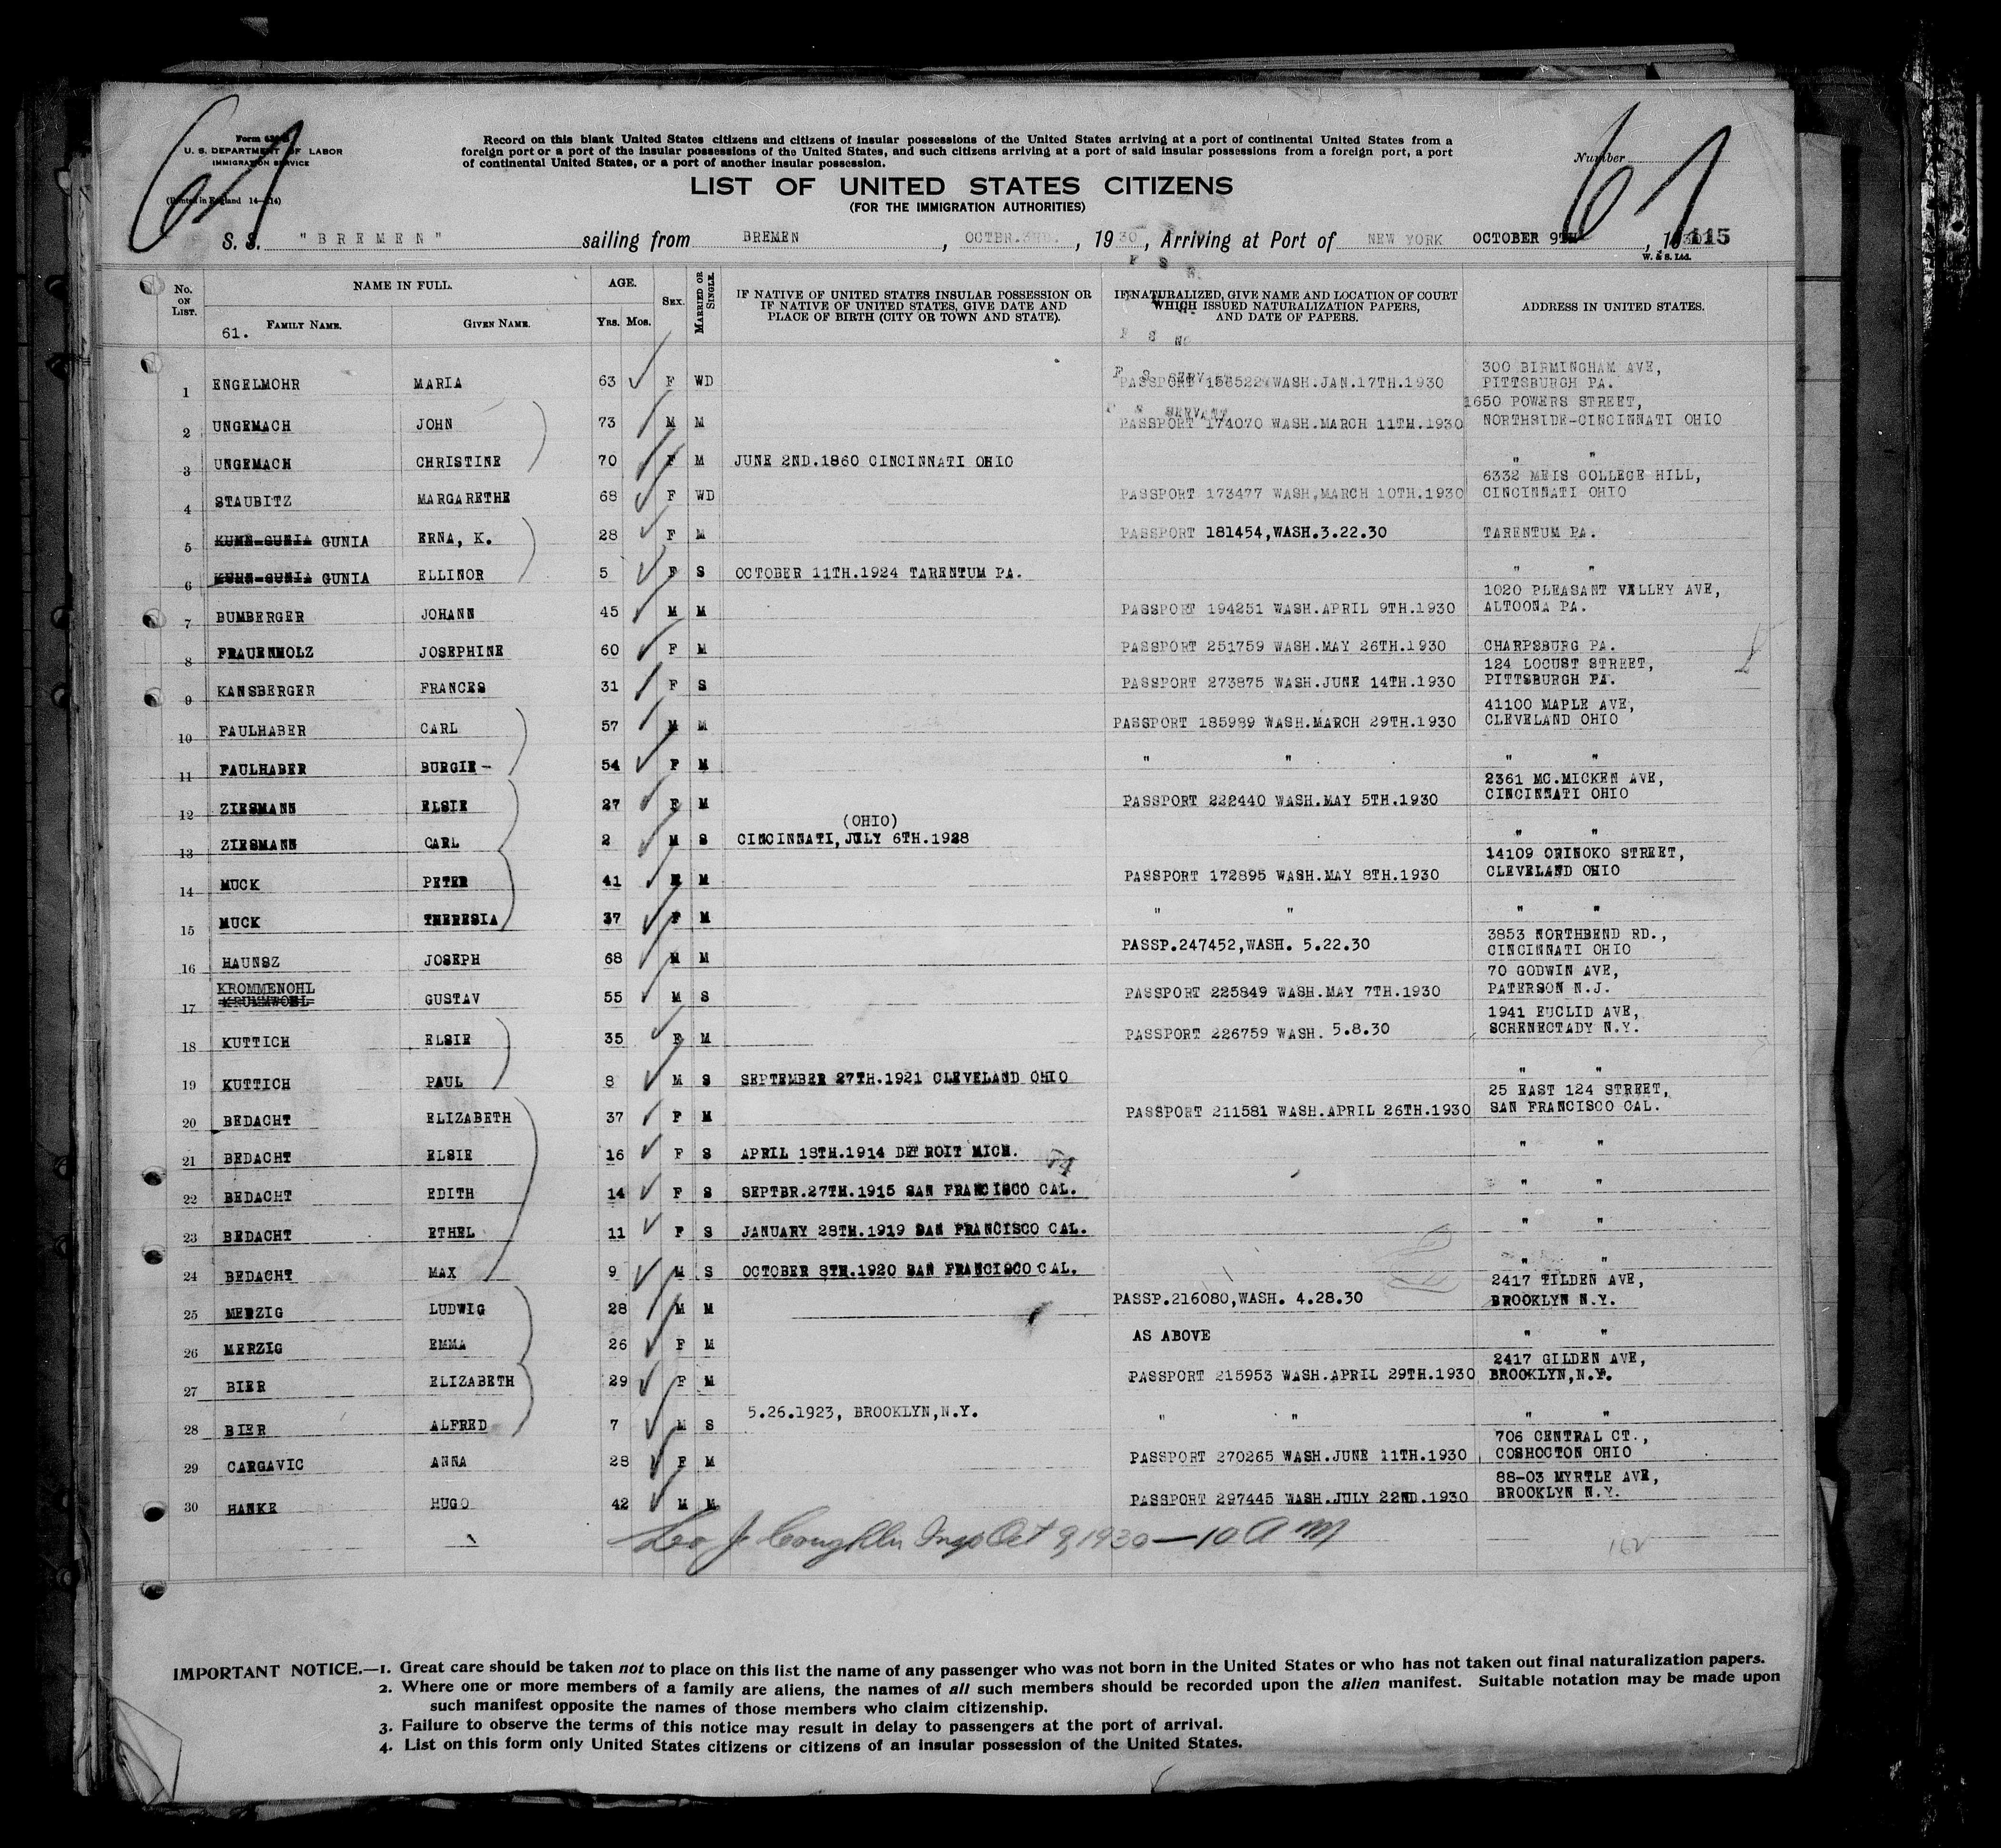 61
61
Form 630
U. S. DEPARTMENT OF LABOR
IMMIGRATION SERVICE
(Printed in England 14—414)
Record on this blank United States citizens and citizens of insular possessions of the United States arriving at a port of continental United States from a
foreign port or a port of the insular possessions of the United States, and such citizens arriving at a port of said insular possessions from a foreign port, a port
of continental United States, or a port of another insular possession.
Number
LIST OF UNITED STATES CITIZENS
(FOR THE IMMIGRATION AUTHORITIES)
S. S. "BREMEN" sailing from BREMEN, OCTBR.3RD., 1930, Arriving at Port of NEW YORK OCTOBER 9TH, 1930 115
W. & S. Ltd.
No. ON LIST. NAME IN FULL. AGE. SEX. MARRIED OR SINGLE. IF NATIVE OF UNITED STATES INSULAR POSSESSION OR IF NATIVE OF UNITED STATES, GIVE DATE AND PLACE OF BIRTH (CITY OR TOWN AND STATE). IF NATURALIZED, GIVE NAME AND LOCATION OF COURT WHICH ISSUED NATURALIZATION PAPERS, AND DATE OF PAPERS. ADDRESS IN UNITED STATES.
61. FAMILY NAME. GIVEN NAME. YRS. MOS.
1 ENGELMOHR MARIA 63 F WD PASSPORT 156522 WASH.JAN.17TH.1930 300 BIRMINGHAM AVE, PITTSBURGH PA.
2 UNGEMACH JOHN 73 M M PASSPORT 174070 WASH.MARCH 11TH.1930 1650 POWERS STREET, NORTHSIDE-CINCINNATI OHIO
3 UNGEMACH CHRISTINE 70 F M JUNE 2ND.1860 CINCINNATI OHIO " "
4 STAUBITZ MARGARETHE 68 F WD PASSPORT 173477 WASH,MARCH 10TH.1930 6332 MEIS COLLEGE HILL, CINCINNATI OHIO
5 KUHN-GUNIA GUNIA ERNA, K. 28 F M PASSPORT 181454,WASH.3.22.30 TARENTUM PA.
6 KUHN-GUNIA GUNIA ELLINOR 5 F S OCTOBER 11TH.1924 TARENTUM PA. " "
7 BUMBERGER JOHANN 45 M M PASSPORT 194251 WASH.APRIL 9TH.1930 1020 PLEASANT VALLEY AVE, ALTOONA PA.
8 FRAUENHOLZ JOSEPHINE 60 F M PASSPORT 251759 WASH.MAY 26TH.1930 CHARPSBURG PA.
9 KANSBERGER FRANCES 31 F S PASSPORT 273875 WASH.JUNE 14TH.1930 124 LOCUST STREET, PITTSBURGH PA.
10 FAULHABER CARL 57 M M PASSPORT 185989 WASH.MARCH 29TH.1930 41100 MAPLE AVE, CLEVELAND OHIO
11 FAULHABER BURGIE- 54 F M " " " "
12 ZIESMANN ELSIE 27 F M PASSPORT 222440 WASH.MAY 5TH.1930 2361 MC.MICKEN AVE, CINCINNATI OHIO
13 ZIESMANN CARL 2 M S CINCINNATI,JULY 6TH.1928 (OHIO) " "
14 MUCK PETER 41 M M PASSPORT 172895 WASH.MAY 8TH.1930 14109 ORINOKO STREET, CLEVELAND OHIO
15 MUCK THERESIA 37 F M " " " "
16 HAUNSZ JOSEPH 68 M M PASSP.247452,WASH. 5.22.30 3853 NORTHBEND RD., CINCINNATI OHIO
17 KROMMENOHL KRUMMWOHL GUSTAV 55 M S PASSPORT 225849 WASH.MAY 7TH.1930 70 GODWIN AVE, PATERSON N.J.
18 KUTTICH ELSIE 35 F M PASSPORT 226759 WASH. 5.8.30 1941 EUCLID AVE, SCHENECTADY N.Y.
19 KUTTICH PAUL 8 M S SEPTEMBER 27TH.1921 CLEVELAND OHIO " "
20 BEDACHT ELIZABETH 37 F M PASSPORT 211581 WASH.APRIL 26TH.1930 25 EAST 124 STREET, SAN FRANCISCO CAL.
21 BEDACHT ELSIE 16 F S APRIL 18TH.1914 DETROIT MICH. " "
22 BEDACHT EDITH 14 F S SEPTBR.27TH.1915 SAN FRANCISCO CAL. " "
23 BEDACHT ETHEL 11 F S JANUARY 28TH.1919 SAN FRANCISCO CAL. " "
24 BEDACHT MAX 9 M S OCTOBER 8TH.1920 SAN FRANCISCO CAL. " "
25 MERZIG LUDWIG 28 M M PASSP.216080,WASH. 4.28.30 2417 TILDEN AVE, BROOKLYN N.Y.
26 MERZIG EMMA 26 F M AS ABOVE " "
27 BIER ELIZABETH 29 F M PASSPORT 215953 WASH.APRIL 29TH.1930 2417 GILDEN AVE, BROOKLYN,N.Y.
28 BIER ALFRED 7 M S 5.26.1923, BROOKLYN,N.Y. " " " "
29 CARGAVIC ANNA 28 F M PASSPORT 270265 WASH.JUNE 11TH.1930 706 CENTRAL CT., COSHOCTON OHIO
30 HANKE HUGO 42 M M PASSPORT 297445 WASH.JULY 22ND.1930 88-03 MYRTLE AVE, BROOKLYN N.Y.
Leo J Coughlin Insp Oct 9, 1930 — 10 AM
162
IMPORTANT NOTICE.—1. Great care should be taken not to place on this list the name of any passenger who was not born in the United States or who has not taken out final naturalization papers.
2. Where one or more members of a family are aliens, the names of all such members should be recorded upon the alien manifest. Suitable notation may be made upon
such manifest opposite the names of those members who claim citizenship.
3. Failure to observe the terms of this notice may result in delay to passengers at the port of arrival.
4. List on this form only United States citizens or citizens of an insular possession of the United States.